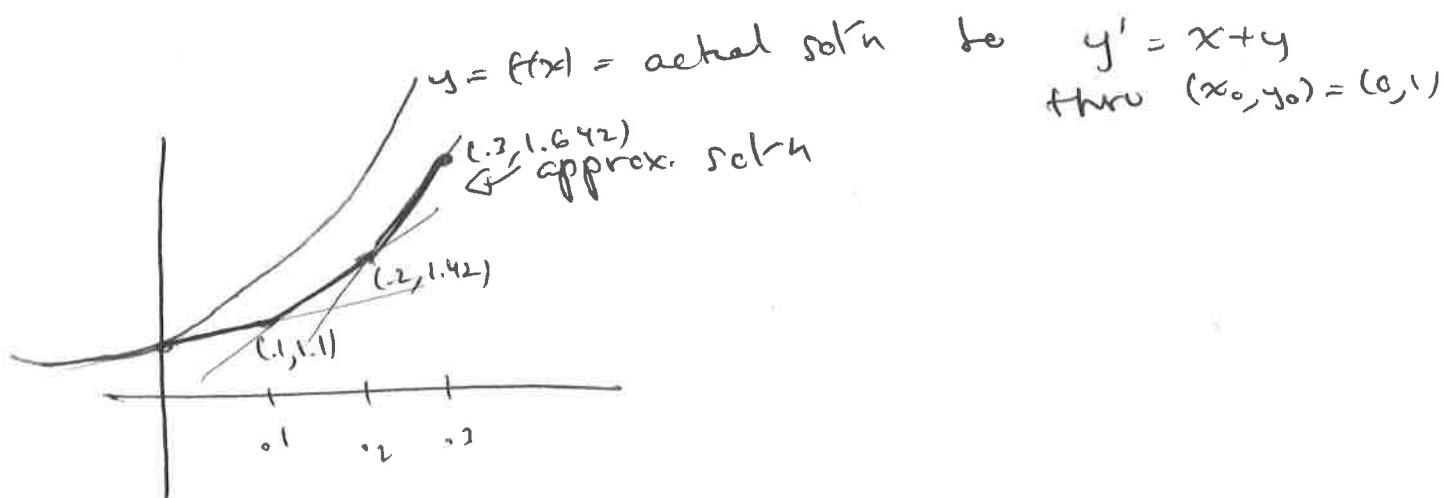 y = f(x) = actual sol'n to y' = x+y
thru (x₀, y₀) = (0,1)
(.3, 1.642)
approx. sol'n
(.2, 1.42)
(.1, 1.1)
.1 .2 .3